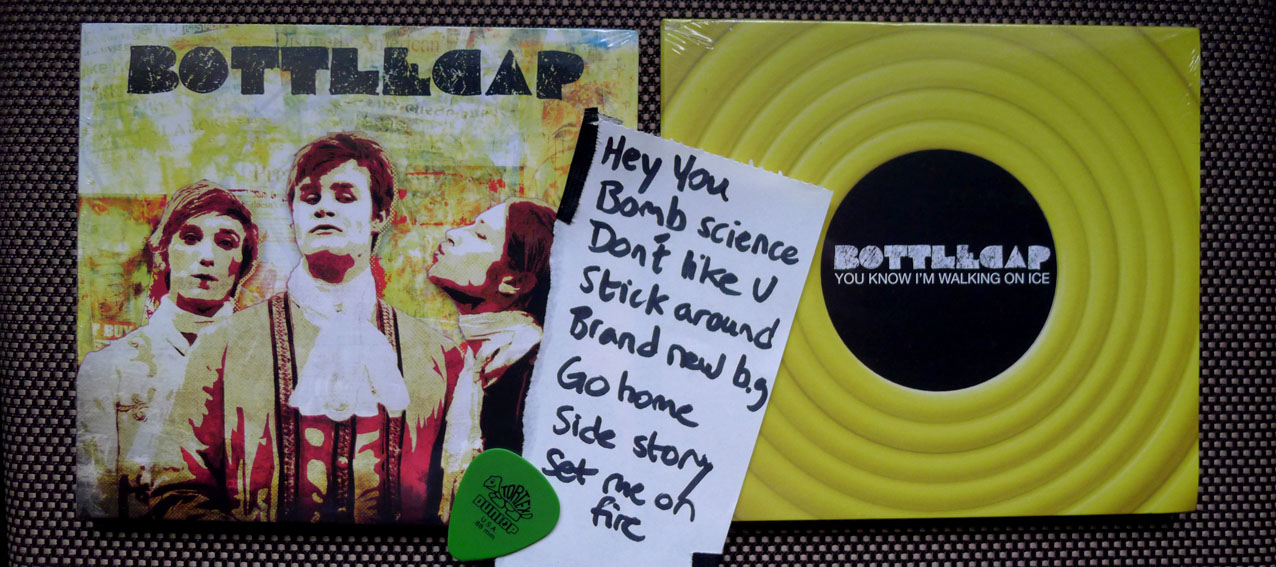 BOTTLECAP
BUY
Hey You
Bomb science
Don't like U
Stick around
Brand new b.g
Go home
Side story
Set me on
fire
TORTEX
DUNLOP
U.S.A.
.88 mm
BOTTLECAP
YOU KNOW I'M WALKING ON ICE